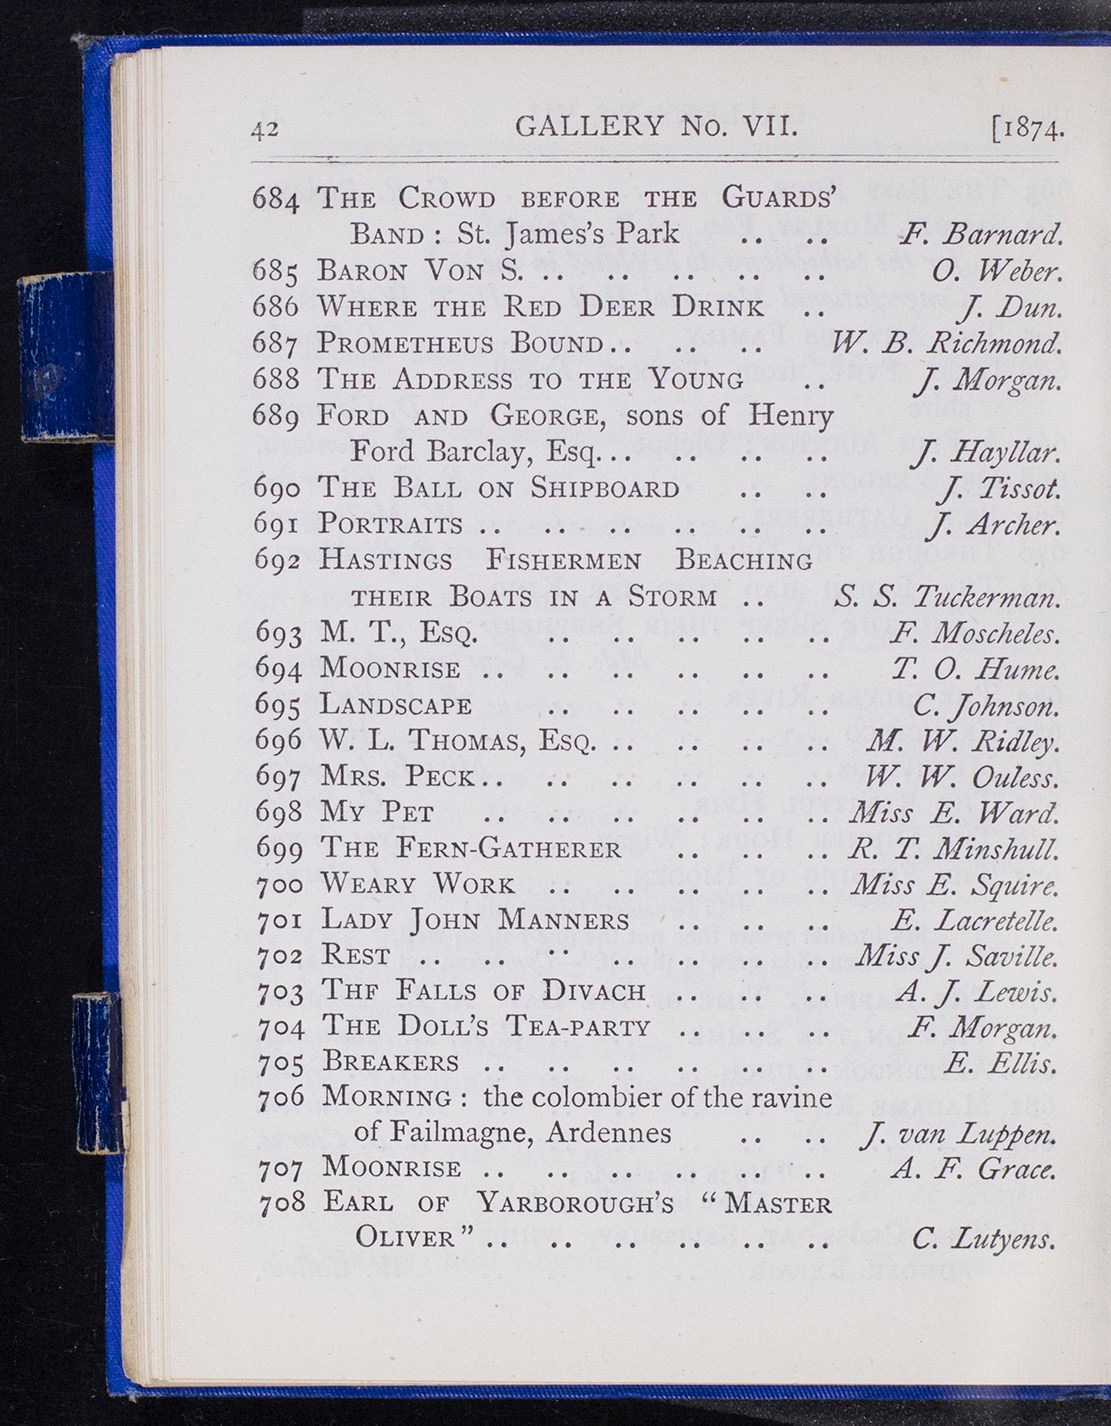 42 GALLERY No. VII. [1874.
684 THE CROWD BEFORE THE GUARDS'
BAND : St. James's Park .. .. F. Barnard.
685 BARON VON S. .. .. .. .. .. O. Weber.
686 WHERE THE RED DEER DRINK .. J. Dun.
687 PROMETHEUS BOUND .. .. .. W. B. Richmond.
688 THE ADDRESS TO THE YOUNG .. J. Morgan.
689 FORD AND GEORGE, sons of Henry
Ford Barclay, Esq. .. .. .. .. J. Hayllar.
690 THE BALL ON SHIPBOARD .. .. J. Tissot.
691 PORTRAITS .. .. .. .. .. .. J. Archer.
692 HASTINGS FISHERMEN BEACHING
THEIR BOATS IN A STORM .. S. S. Tuckerman.
693 M. T., ESQ. .. .. .. .. .. F. Moscheles.
694 MOONRISE .. .. .. .. .. .. T. O. Hume.
695 LANDSCAPE .. .. .. .. .. C. Johnson.
696 W. L. THOMAS, ESQ. .. .. .. .. M. W. Ridley.
697 MRS. PECK .. .. .. .. .. .. W. W. Ouless.
698 MY PET .. .. .. .. .. .. Miss E. Ward.
699 THE FERN-GATHERER .. .. .. R. T. Minshull.
700 WEARY WORK .. .. .. .. .. Miss E. Squire.
701 LADY JOHN MANNERS .. .. .. E. Lacretelle.
702 REST .. .. .. .. .. .. .. Miss J. Saville.
703 THF FALLS OF DIVACH .. .. .. A. J. Lewis.
704 THE DOLL'S TEA-PARTY .. .. .. F. Morgan.
705 BREAKERS .. .. .. .. .. .. E. Ellis.
706 MORNING : the colombier of the ravine
of Failmagne, Ardennes .. .. J. van Luppen.
707 MOONRISE .. .. .. .. .. .. A. F. Grace.
708 EARL OF YARBOROUGH'S "MASTER
OLIVER" .. .. .. .. .. .. C. Lutyens.